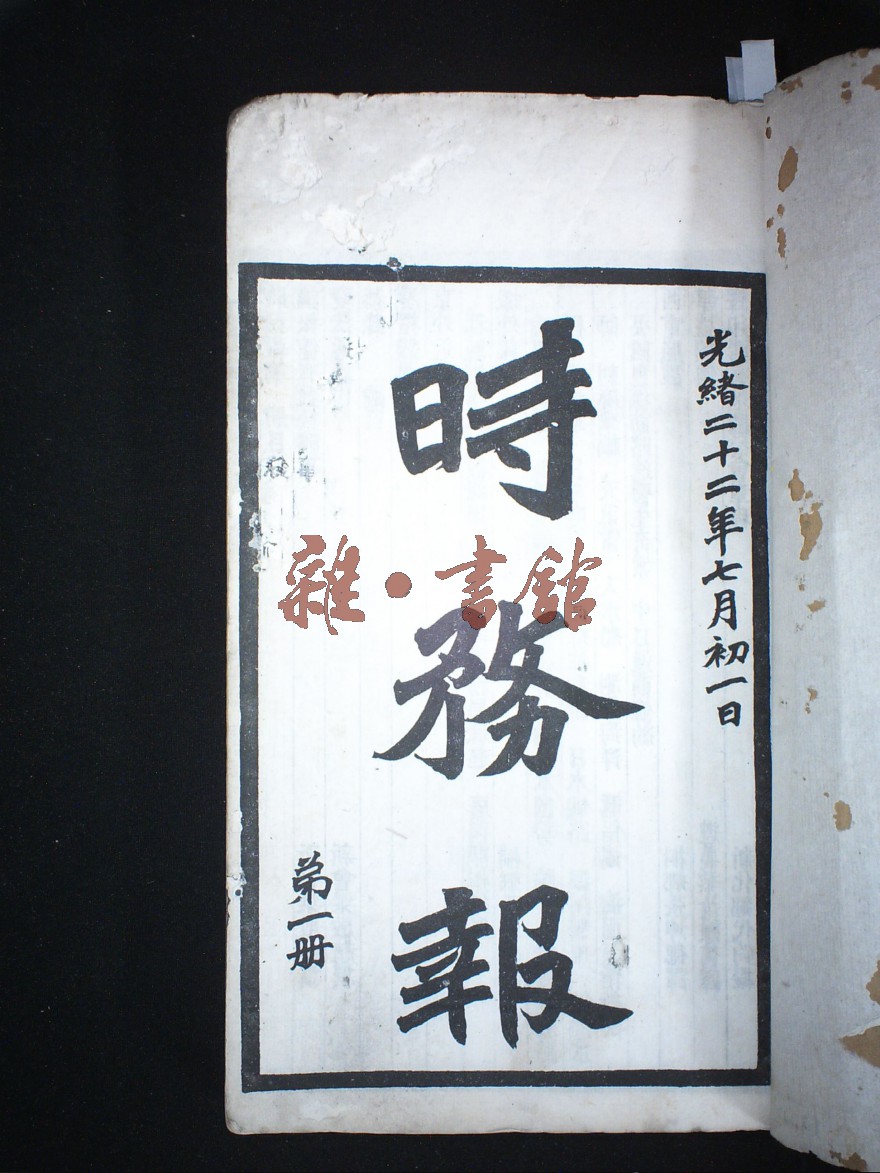 光緒二十二年七月初一日
時務報
第一册
雜·書館